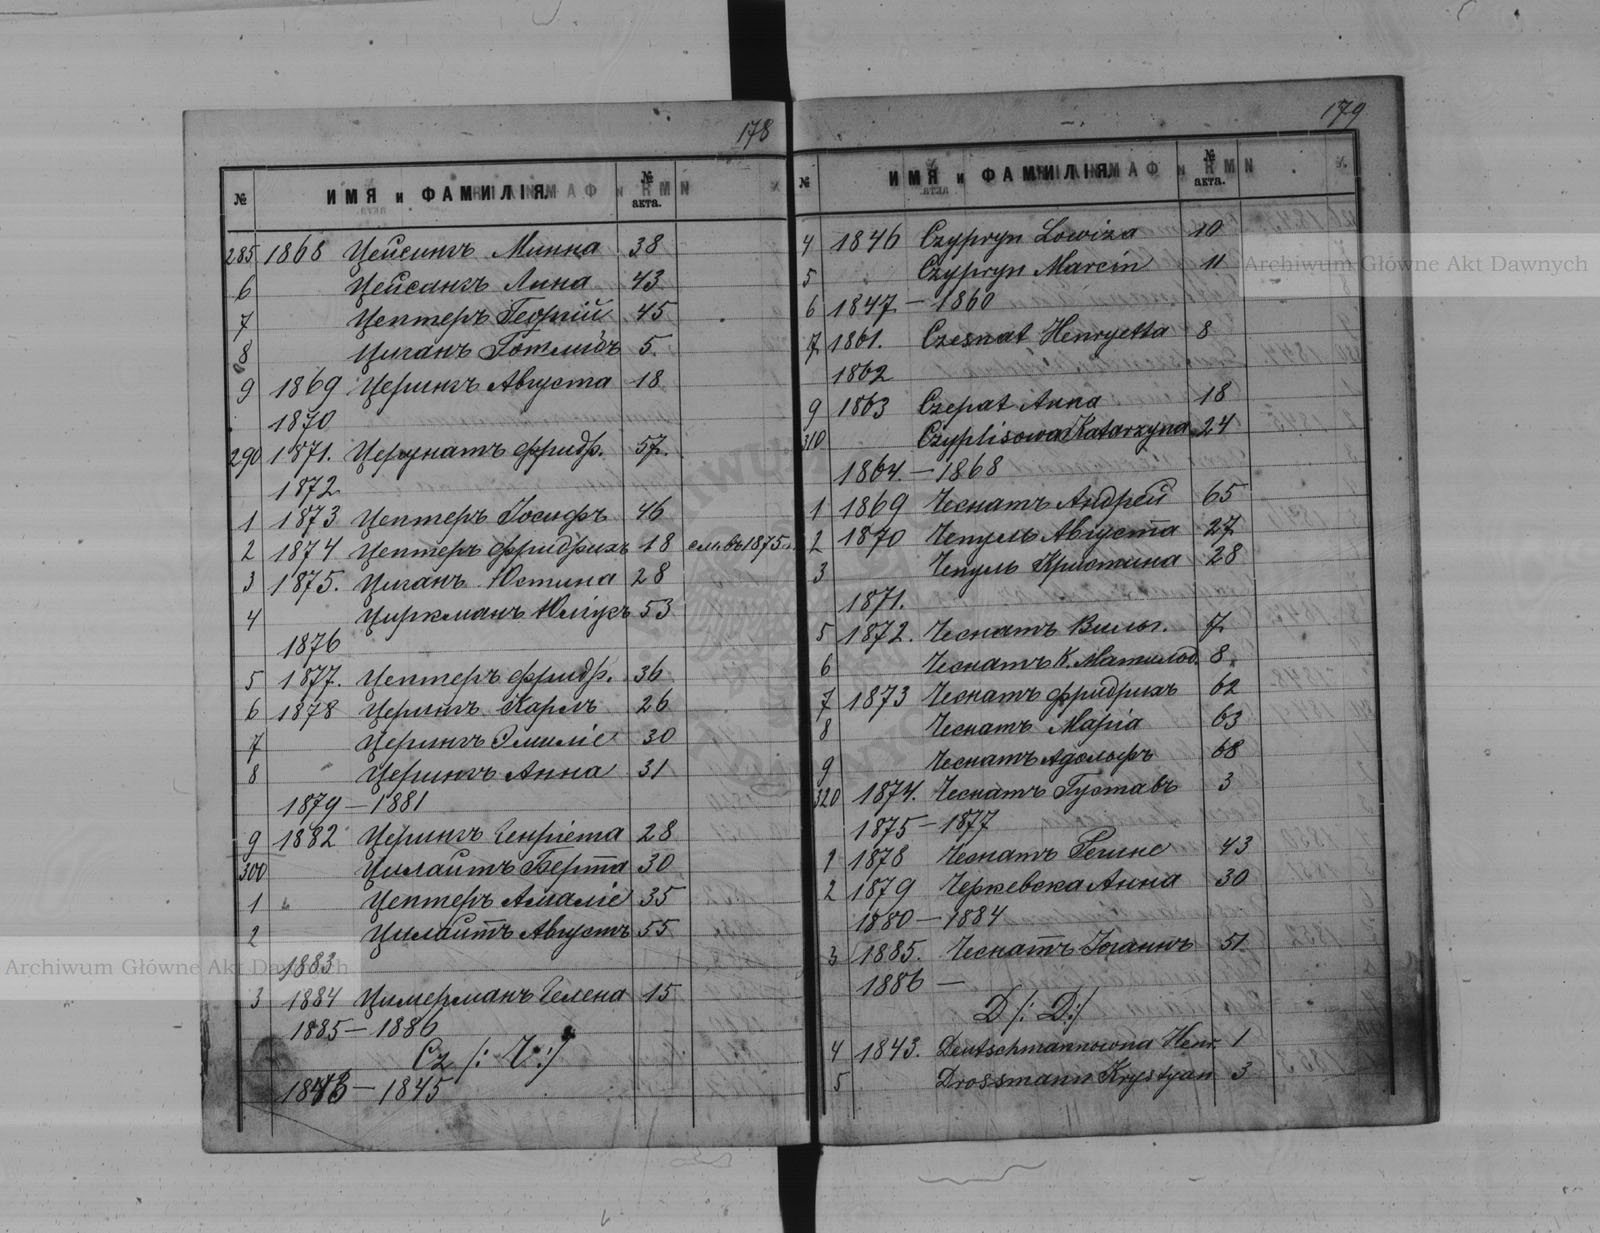 178
№ ИМЯ и ФАМИЛІЯ № акта.
285 1868 Цейсингъ Минна 38
6 Цейсангъ Лина 43
7 Цептеръ Георгій 45
8 Циганъ Готлибъ 5.
9 1869 Церингъ Августа 18
1870
290 1871. Церунатъ Фридр. 57.
1872
1 1873 Цептеръ Іосифъ 46
2 1874 Цептеръ Фридрихъ 18 см. въ 1875 г.
3 1875. Циганъ Юстина 28
4 Циркманъ Юліусъ 53
1876
5 1877. Цептеръ Фридр. 36
6 1878 Церингъ Карлъ 26
7 Церингъ Эмиліе 30
8 Церингъ Анна 31
1879 — 1881
9 1882 Церингъ Генріета 28
300 Цилаитъ Берта 30
1 Цептеръ Амаліе 35
2 Цилаитъ Августъ 55
1883
3 1884 Цимерманъ Гелена 15
1885 — 1886
Cz /: Ч :/
1843 — 1845
179
№ ИМЯ и ФАМИЛІЯ № акта.
4 1846 Czypryn Lowiza 10
5 Czypryn Marcin 11
6 1847 — 1860
7 1861. Czesnat Henryetta 8
1862
9 1863 Czepat Anna 18
310 Czyplisowa Katarzyna 24
1864. — 1868
1 1869 Чеснатъ Андрей 65
2 1870 Чепуль Августа 27
3 Чепуль Кристина 28
1871.
5 1872. Чеснатъ Вильг. 7
6 Чеснатъ К. Матильд. 8.
7 1873 Чеснатъ Фридрихъ 62
8 Чеснатъ Марія 63
9 Чеснатъ Адольфъ 68
320 1874. Чеснатъ Густавъ 3
1875 — 1877
1 1878 Чеснатъ Регине 43
2 1879 Черкевска Анна 30
1880 — 1884
3 1885. Чеснатъ Іоганнъ 51
1886 —
D /: D :/
4 1843. Deutschmannowna Henr. 1
5 Drossmann Krystyan 3
Archiwum Główne Akt Dawnych
Archiwum Główne Akt Dawnych